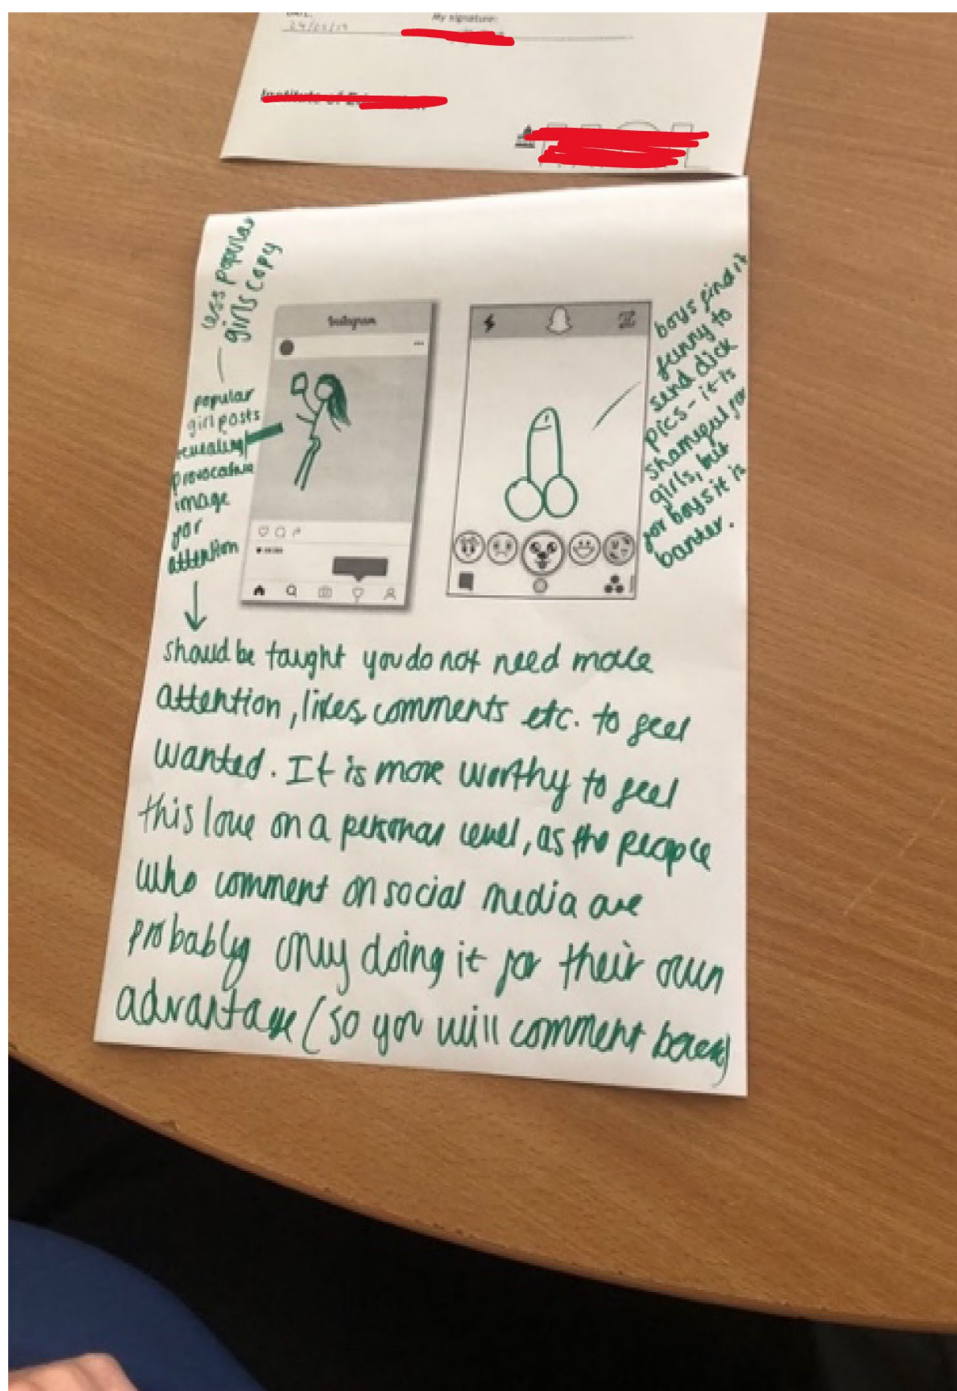 My signature:
24/05/19
less popular
girls copy
popular
girl posts
revealing/
provocative
image
for
attention
Instagram
boys find it
funny to
send dick
pics - it is
shameful for
girls, but
for boys it is
banter.
should be taught you do not need more
attention, likes, comments etc. to feel
wanted. It is more worthy to feel
this love on a personal level, as the people
who comment on social media are
probably only doing it for their own
advantage (so you will comment